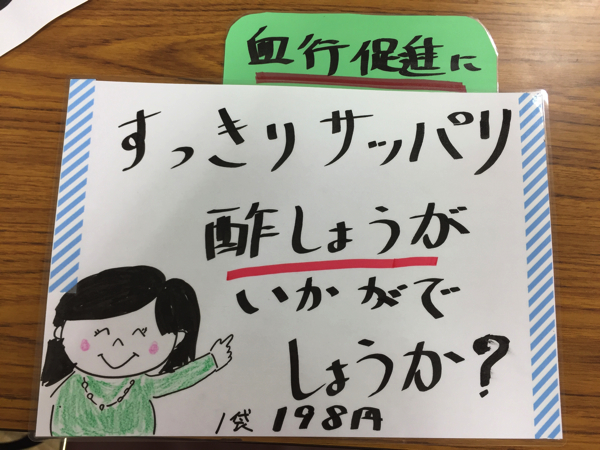 血行促進に
すっきりサッパリ
酢しょうが
いかがで
しょうか?
1袋 198円